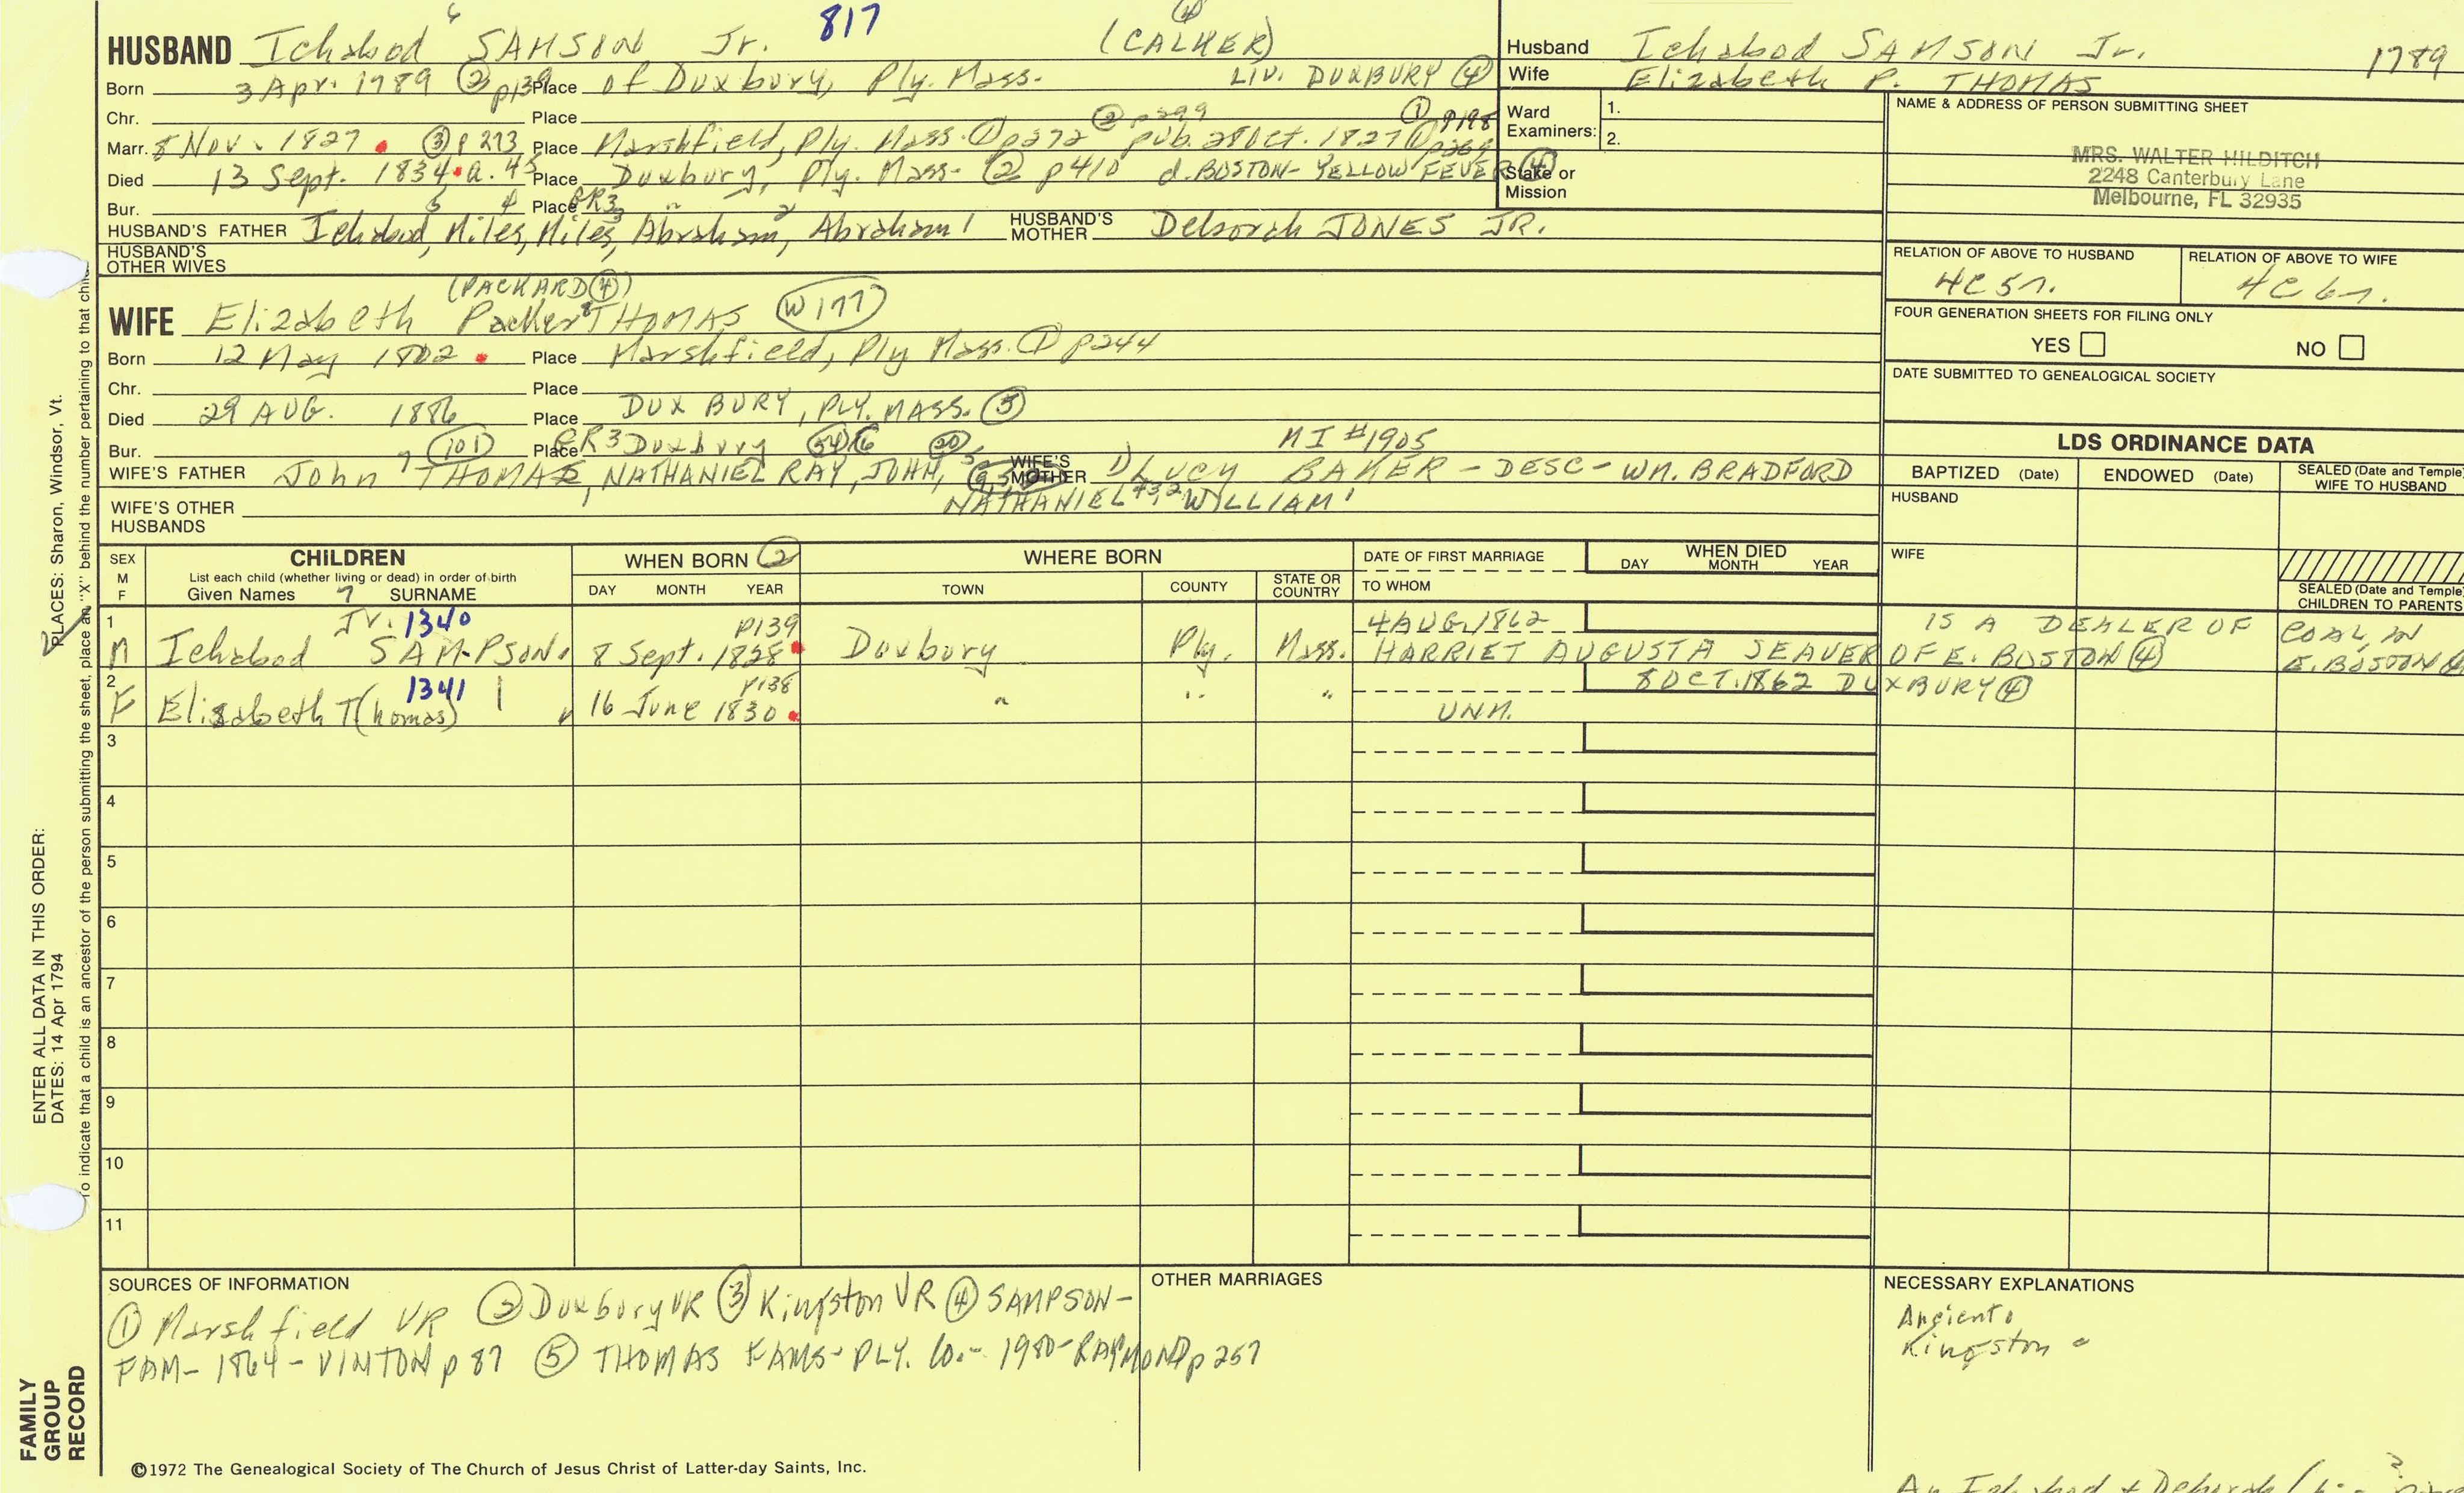 HUSBAND Ichabod 6 SAMSON Jr. 817 (CALKER) ④
Born 3 Apr. 1789 ② p139 Place of Duxbury, Ply. Mass. LIV. DUXBURY ④
Chr. Place
Marr. 8 Nov. 1827 ③ p 273 Place Marshfield, Ply. Mass. ① p372 ② p299 pub. 28 Oct. 1827 ① p198 ① p369
Died 13 Sept. 1834 a. 45 Place Duxbury, Ply. Mass- ② p410 d. BOSTON- YELLOW FEVER ④
Bur. Place GR3
HUSBAND'S FATHER Ichabod, 5 Miles, 4 Miles, 3 Abraham, 2 Abraham 1 HUSBAND'S MOTHER Deborah JONES JR.
HUSBAND'S OTHER WIVES
(PACKARD ④)
WIFE Elizabeth Packer 8 THOMAS W177
Born 12 May 1802 Place Marshfield, Ply Mass. ① p244
Chr. Place
Died 29 AUG. 1886 Place DUXBURY, PLY. MASS. ⑤
Bur. 101 Place GR3 Duxbury 20 MI #1905
WIFE'S FATHER John 7 THOMAS, NATHANIEL RAY, JOHN, 5 WIFE'S MOTHER Lucy BAKER - DESC - WM. BRADFORD
NATHANIEL 4 3 2 WILLIAM 1
WIFE'S OTHER HUSBANDS
Husband Ichabod SAMSON Jr. 1789
Wife Elizabeth P. THOMAS
Ward Examiners: 1.
2.
Stake or Mission
NAME & ADDRESS OF PERSON SUBMITTING SHEET
MRS. WALTER HILDITCH
2248 Canterbury Lane
Melbourne, FL 32935
RELATION OF ABOVE TO HUSBAND RELATION OF ABOVE TO WIFE
4C5r. 4C6r.
FOUR GENERATION SHEETS FOR FILING ONLY
YES NO
DATE SUBMITTED TO GENEALOGICAL SOCIETY
LDS ORDINANCE DATA
BAPTIZED (Date) ENDOWED (Date) SEALED (Date and Temple) WIFE TO HUSBAND
HUSBAND
WIFE
SEALED (Date and Temple) CHILDREN TO PARENTS
SEX M F CHILDREN WHEN BORN ② WHERE BORN DATE OF FIRST MARRIAGE WHEN DIED
List each child (whether living or dead) in order of birth
Given Names 7 SURNAME DAY MONTH YEAR TOWN COUNTY STATE OR COUNTRY TO WHOM DAY MONTH YEAR
1 Jr. 1340 p139 4 AUG. 1862 IS A DEALER OF COAL IN
M Ichabod SAMPSON 8 Sept. 1828 Duxbury Ply. Mass. HARRIET AUGUSTA SEAVER OF E. BOSTON ④ E. BOSTON ④
2 1341 p138 8 OCT. 1862 DUXBURY ④
F Elizabeth T(homas) 16 June 1830 " " " UNM.
3
4
5
6
7
8
9
10
11
SOURCES OF INFORMATION
① Marshfield VR ② Duxbury VR ③ Kingston VR ④ SAMPSON-
FAM- 1864 - VINTON p 87 ⑤ THOMAS FAMS- PLY. Co.- 1980- RAYMOND p 257
OTHER MARRIAGES
NECESSARY EXPLANATIONS
Ancient
Kingston
An Ichabod + Deborah
©1972 The Genealogical Society of The Church of Jesus Christ of Latter-day Saints, Inc.
FAMILY GROUP RECORD
ENTER ALL DATA IN THIS ORDER:
DATES: 14 Apr 1794
PLACES: Sharon, Windsor, Vt.
To indicate that a child is an ancestor of the person submitting the sheet, place an "X" behind the number pertaining to that child.